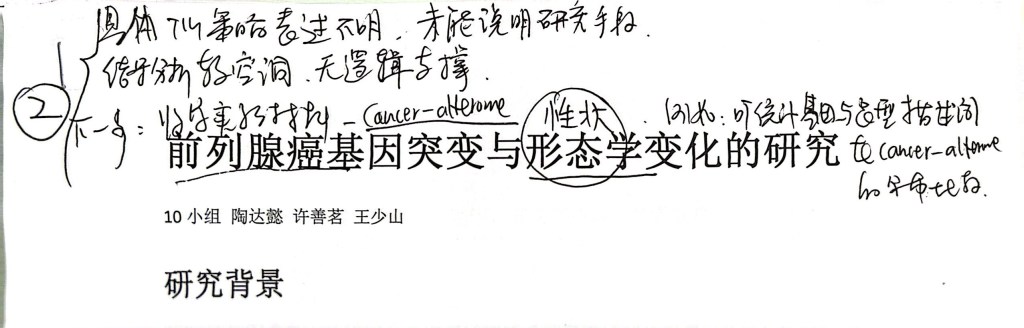 具体TM策略表述不明，未能说明研究手段.
结果分析较空洞，无逻辑支撑.
②
下一步：收集更新材料 - cancer-alterome 性状 . 例如：可统计基因与表型描述词
在cancer-alterome
的分布比较.
前列腺癌基因突变与形态学变化的研究
10 小组 陶达懿 许善茗 王少山
研究背景